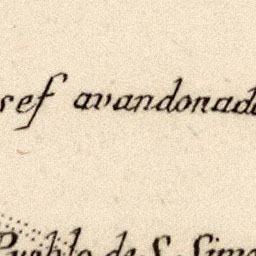 sef avandonad
Pueblo de S. Sim